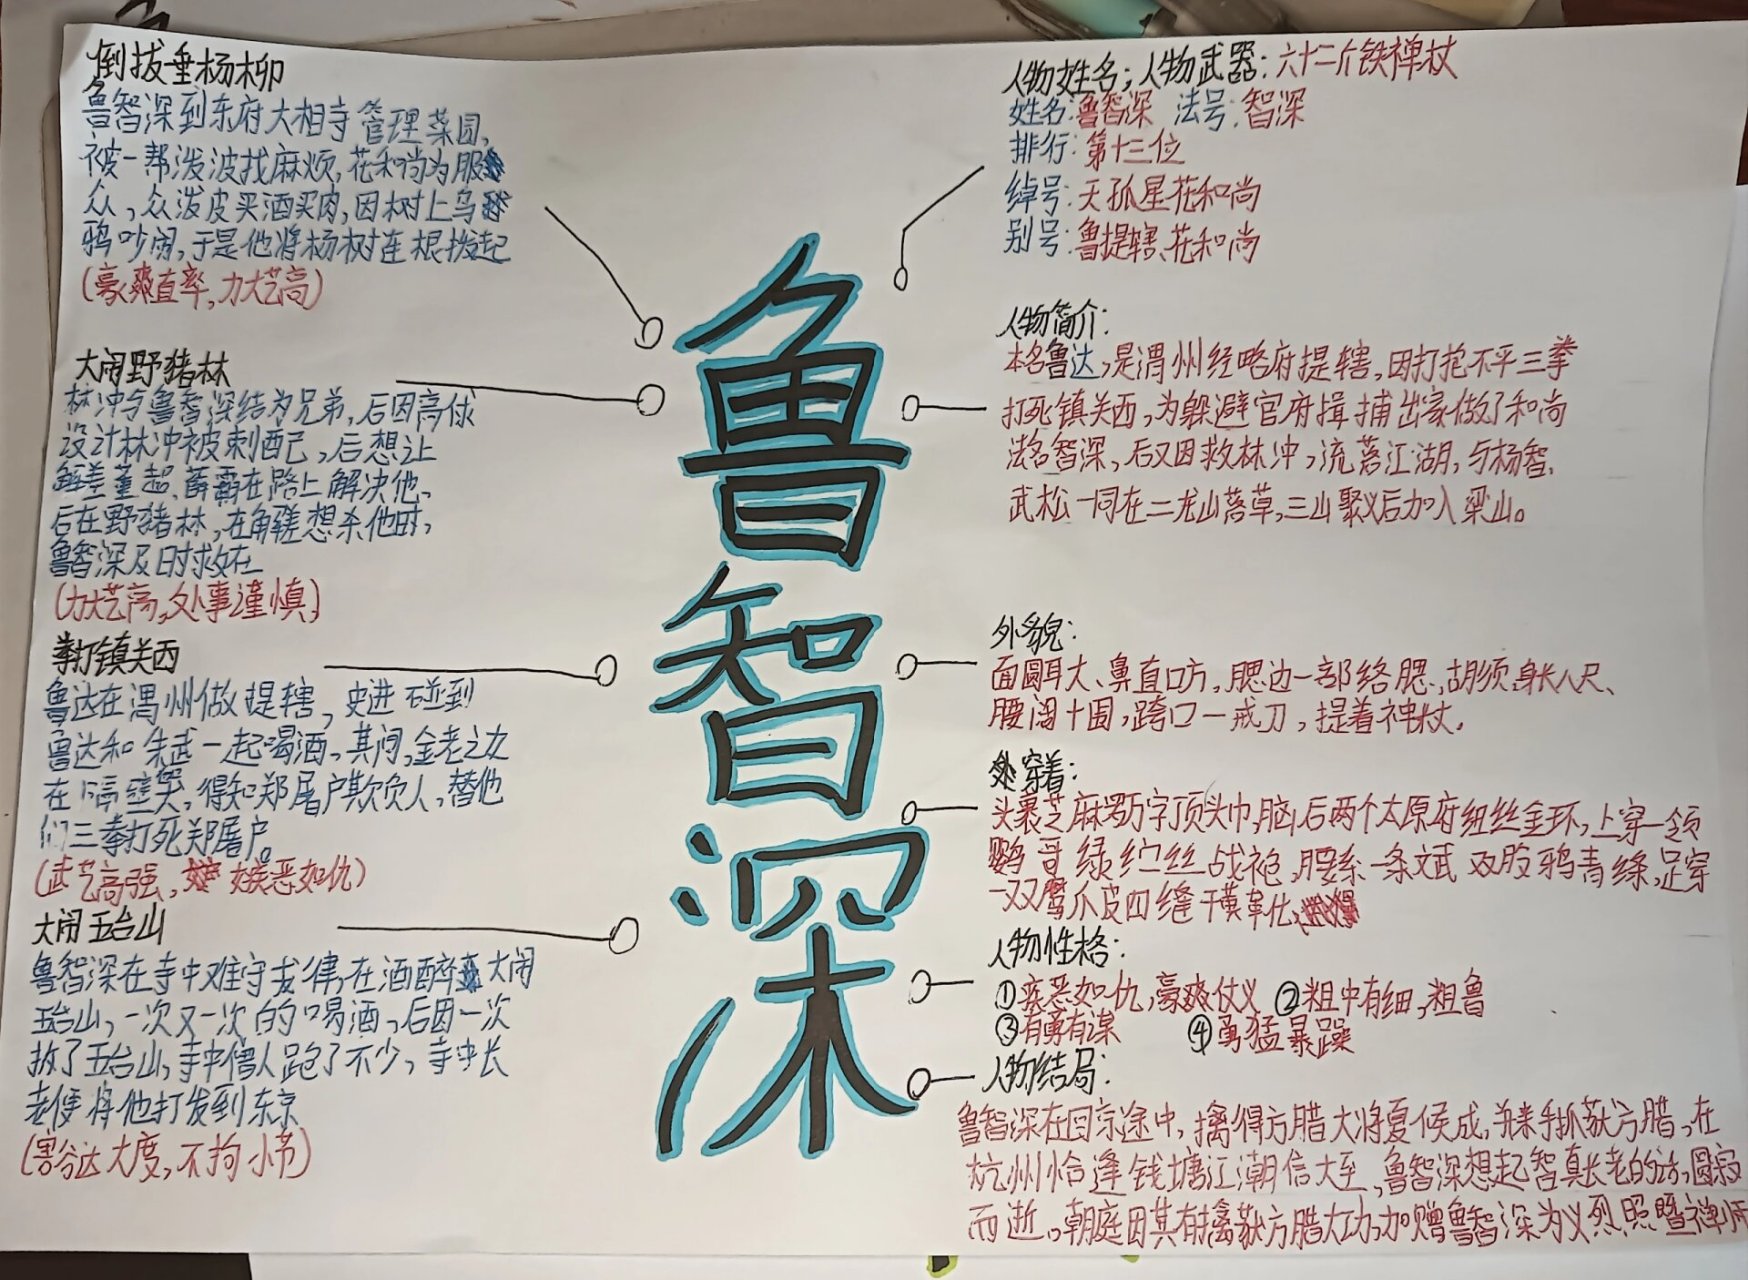 倒拔垂杨柳
鲁智深到东府大相寺管理菜园,
被一帮泼波找麻烦,花和尚为服
众,众泼皮买酒买肉,因树上乌
鸦吵闹,于是他将杨树连根拨起
(豪爽直率,力大艺高)
大闹野猪林
林冲与鲁智深结为兄弟,后因高俅
设计林冲被刺配己,后想让
解差董超、薛霸在路上解决他、
后在野猪林,在解差想杀他时,
鲁智深及日时救在
(力大艺高,处事谨慎)
拳打镇关西
鲁达在渭州做提辖,史进碰到
鲁达和朱武一起喝酒、其间,金老之女
在隔壁哭,得知郑屠户欺负人,替他
们三拳打死郑屠户。
(武艺高强,嫉恶如仇)
大闹五台山
鲁智深在寺中难守戎律,在酒醉大闹
五台山,一次又一次的喝酒、后因一次
拆了五台山,寺中僧人跑了不少,寺中长
老便将他打发到东京
(豁达大度,不拘小节)
鲁智深
人物姓名;人物武器:六十二斤铁禅杖
姓名:鲁智深 法号:智深
排行:第十三位
绰号:天孤星花和尚
别号:鲁提辖、花和尚
人物简介:
本名鲁达,是渭州经略府提辖,因打抱不平三拳
打死镇关西,为躲避官府揖捕出家做了和尚
法名智深,后又因救林冲,流落江湖,与杨智、
武松一同在二龙山落草,三山聚义后加入梁山。
外貌:
面圆耳大、鼻直口方,腮边一部络腮,胡须,身长八尺、
腰阔十围,跨口一戒刀,提着神杖.
穿着:
头裹芝麻罗万字顶头巾,脑后两个太原府纽丝金环,上穿一领
鹦哥绿纻丝战袍,腰系一条文武双股鸦青绦,足穿
一双鹰爪皮四缝干黄革化
人物性格:
①疾恶如仇,豪爽仗义 ②粗中有细,粗鲁
③有勇有谋 ④勇猛暴躁
人物结局:
鲁智深在回京途中,擒得方腊大将夏侯成,并来手抓获方腊,在
杭州恰逢钱塘江潮信大至,鲁智深想起智真长老的话,圆寂
而逝。朝庭因其有擒获方腊大功,加赠鲁智深为义烈照暨禅师